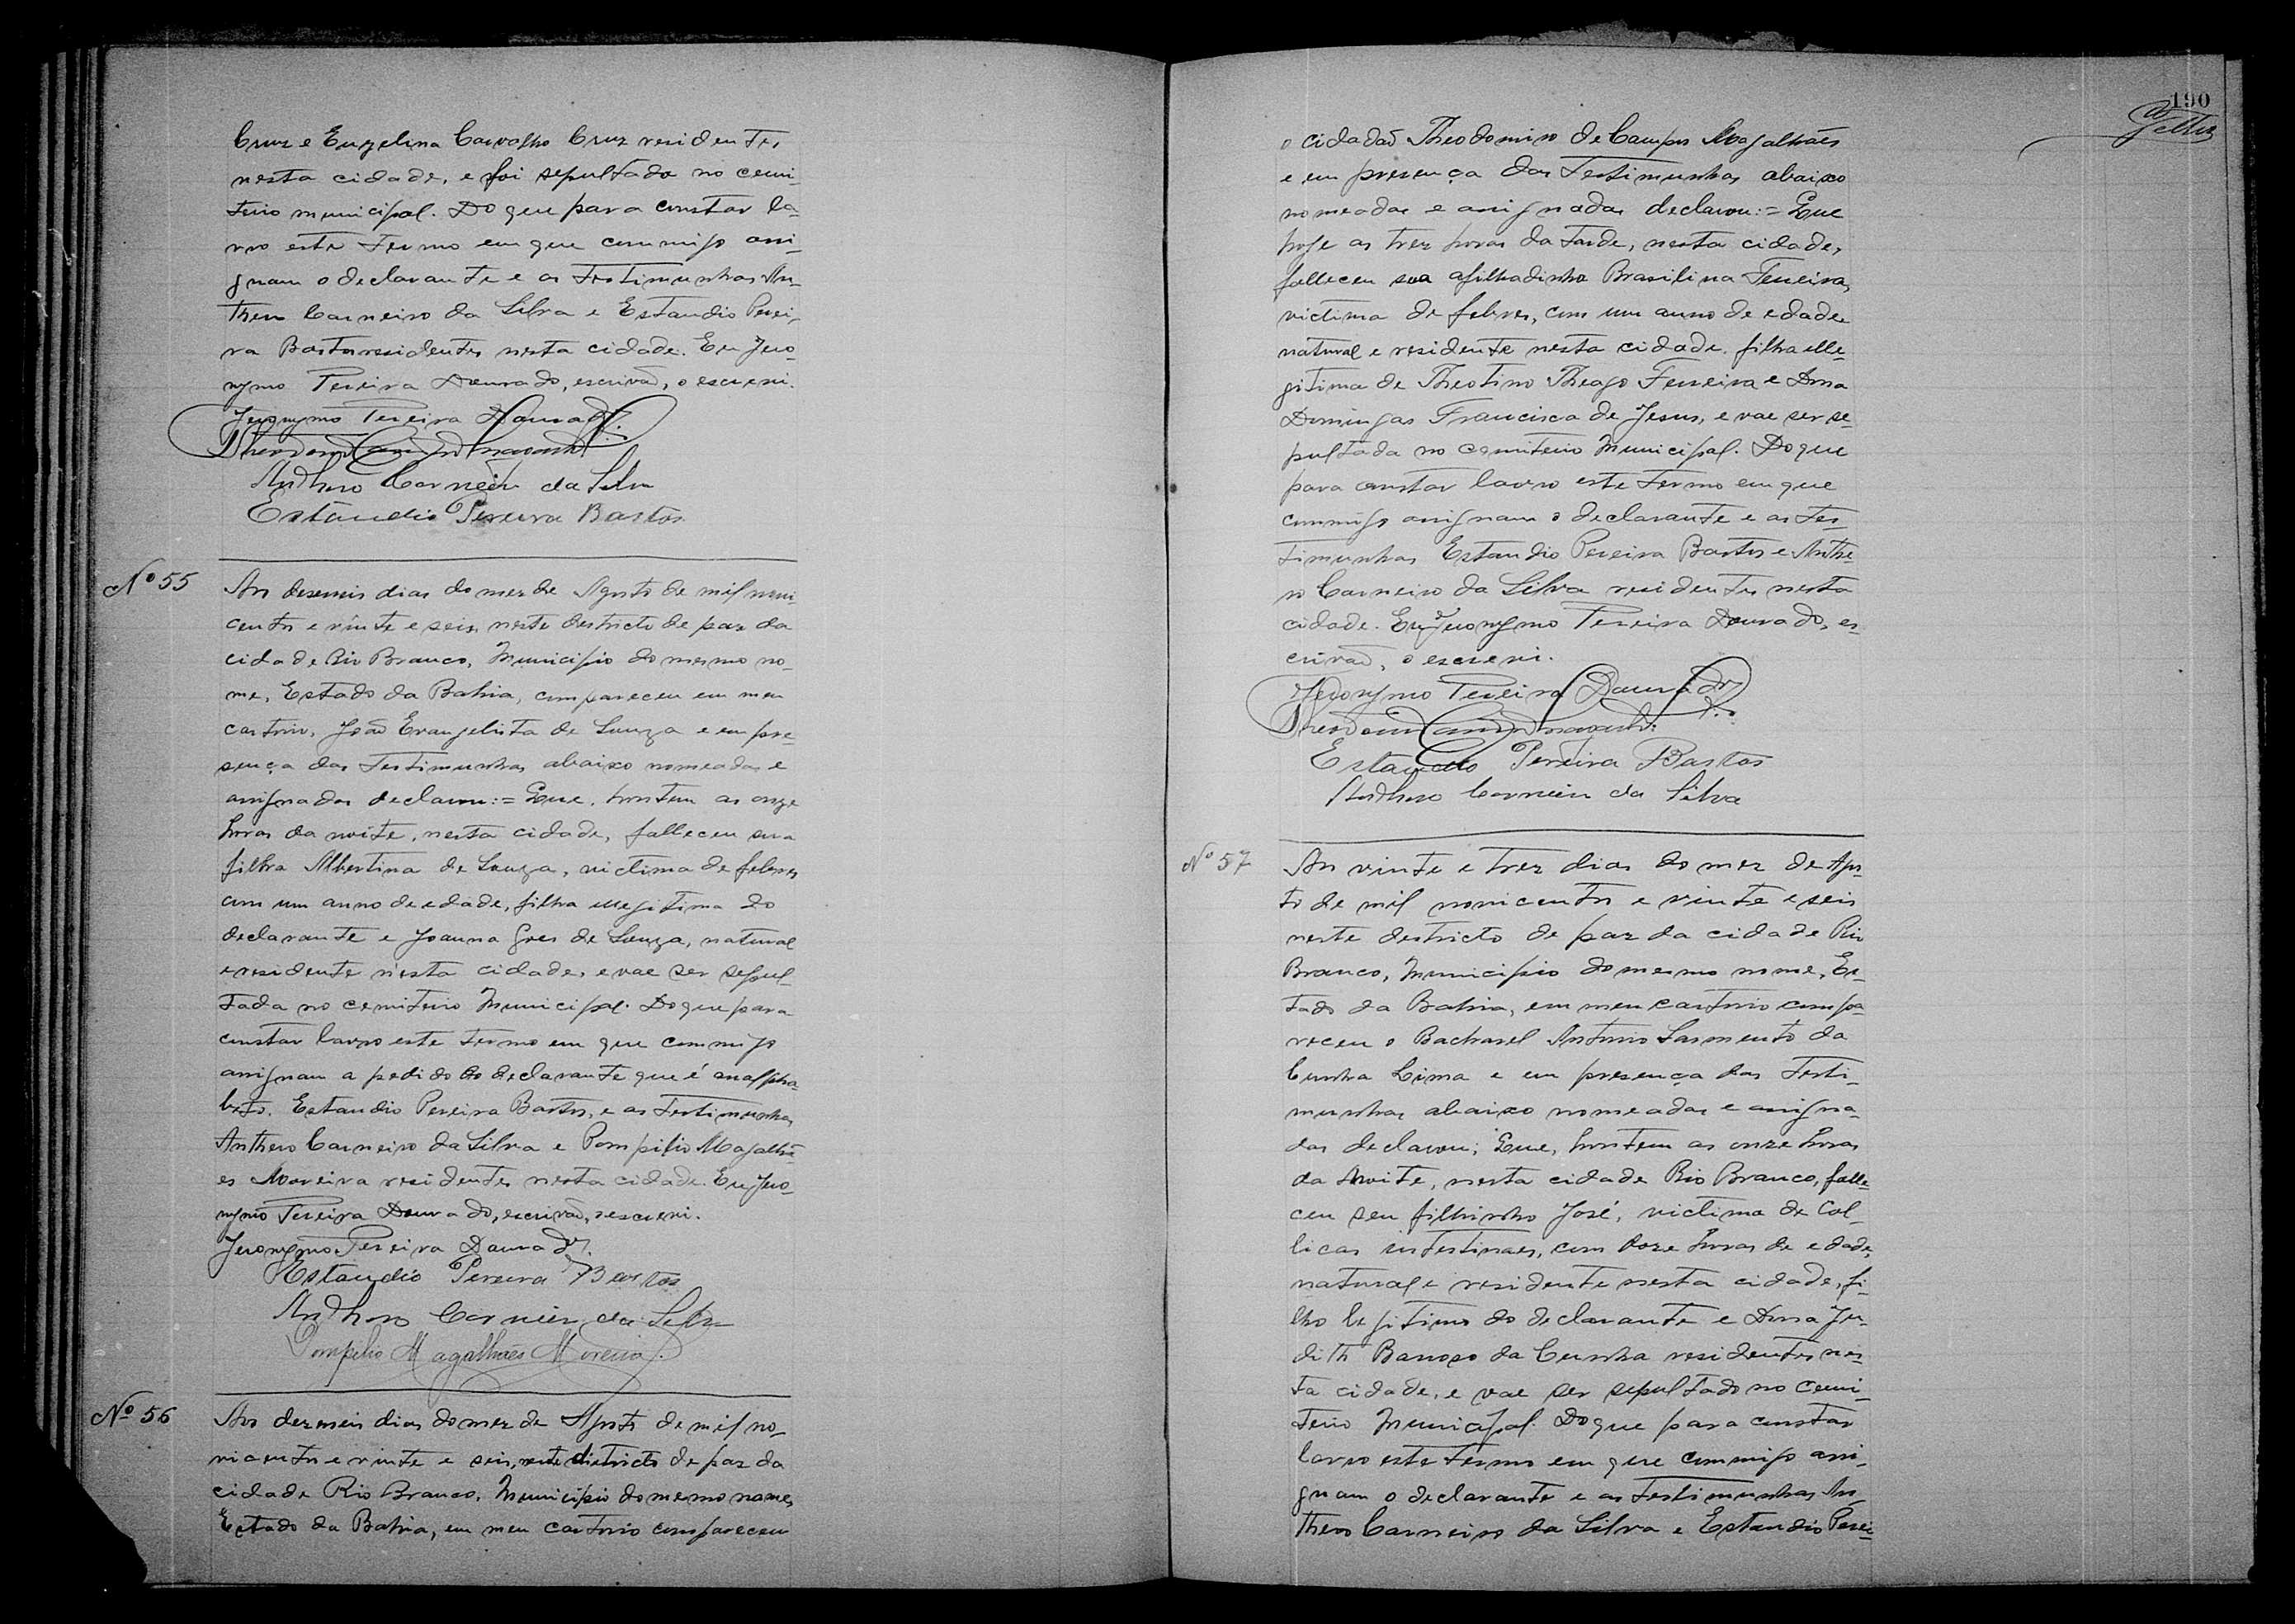 Cruz e Engelina Carvalho Cruz residentes
nesta cidade, e foi sepultado no cemi-
terio municipal. Do que para constar la-
vro este termo em que commigo assi-
gnam o declarante e as testimunhas An-
thero Carneiro da Silva e Estandio Perei-
ra Bastos residentes nesta cidade. Eu Jero-
nymo Pereira Dourado, escrivaõ, o escrevi.
Jeronymo Pereira Dourado
Anthero Carneiro da Silva
Estandio Pereira Bastos
Nº 55
Aos deseseis dias do mez de Agosto de mil novi-
centos e vinte e seis, neste destricto de paz da
cidade Rio Branco, Municipio do mesmo no-
me, Estado da Bahia, compareceu em meu
cartorio, João Evangelista de Souza e em pre-
sença das testimunhas abaixo nomeadas e
assignadas declarou:= Que, hontem as onze
horas da noite, nesta cidade, falleceu sua
filha Albertina de Souza, victima de febres
com um anno de edade, filha illegitima do
declarante e Joanna Gres de Souza, natural
e residente n'esta cidade, e vae ser sepul-
tada no cemiterio Municipal. Do que para
constar lavro este termo em que commigo
assignam a pedido do declarante que é analpha-
beto, Estandio Pereira Bastos, e as testimunhas
Anthero Carneiro da Silva e Pompilio Magalhã-
es Moreira residentes nesta cidade. Eu Jero-
nymo Pereira Dourado, escrivaõ, o escrevi.
Jeronymo Pereira Dourado
Estandio Pereira Bastos
Anthero Carneiro da Silva
Pompilio Magalhães Moreira
Nº 56
Aos dezeseis dias do mez de Agosto de mil no-
vicentos e vinte e seis, neste districto de paz da
cidade Rio Branco, Municipio do mesmo nome,
Estado da Bahia, em meu cartorio compareceu
190
o cidadaõ Theodomiro de Campos Magalhães
e em presença das testimunhas abaixo
nomeadas e assignadas declarou:= Que
hoje as trez horas da tarde, nesta cidade,
falleceu sua afilhadinha Brasilina Ferreira,
victima de febres, com um anno de edade
natural e residente nesta cidade, filha ille-
gitima de Theotino Theago Ferreira e Dona
Domingas Francisca de Jesus, e vae ser se-
pultada no cemiterio Municipal. Do que
para constar lavro este termo em que
commigo assignam o declarante e as tes-
timunhas Estandio Pereira Bastos e Anthe-
ro Carneiro da Silva residentes nesta
cidade. Eu Jeronymo Pereira Dourado, es-
crivaõ, o escrevi.
Jeronymo Pereira Dourado
Estandio Pereira Bastos
Anthero Carneiro da Silva
Nº 57
Aos vinte e trez dias do mez de Agos-
to de mil novicentos e vinte e seis
neste destricto de paz da cidade Rio
Branco, Municipio do mesmo nome, Es-
tado da Bahia, em meu cartorio compa-
receu o Bacharel Antonio Sarmento da
Cunha Lima e em presença das testi-
munhas abaixo nomeadas e assigna-
das declarou; Que, hontem as onze horas
da Noite, nesta cidade Rio Branco, falle-
ceu seu filhinho José, victima de Col-
licas intestinaes, com doze horas de edade,
natural e residente nesta cidade, fi-
lho legitimo do declarante e Dona Ju-
dith Barroso da Cunha residentes nes-
ta cidade, e vae ser sepultado no cemi-
terio Municipal. Do que para constar
lavro este termo em que commigo assi-
gnam o declarante e as testimunhas An-
thero Carneiro da Silva e Estandio Perei-